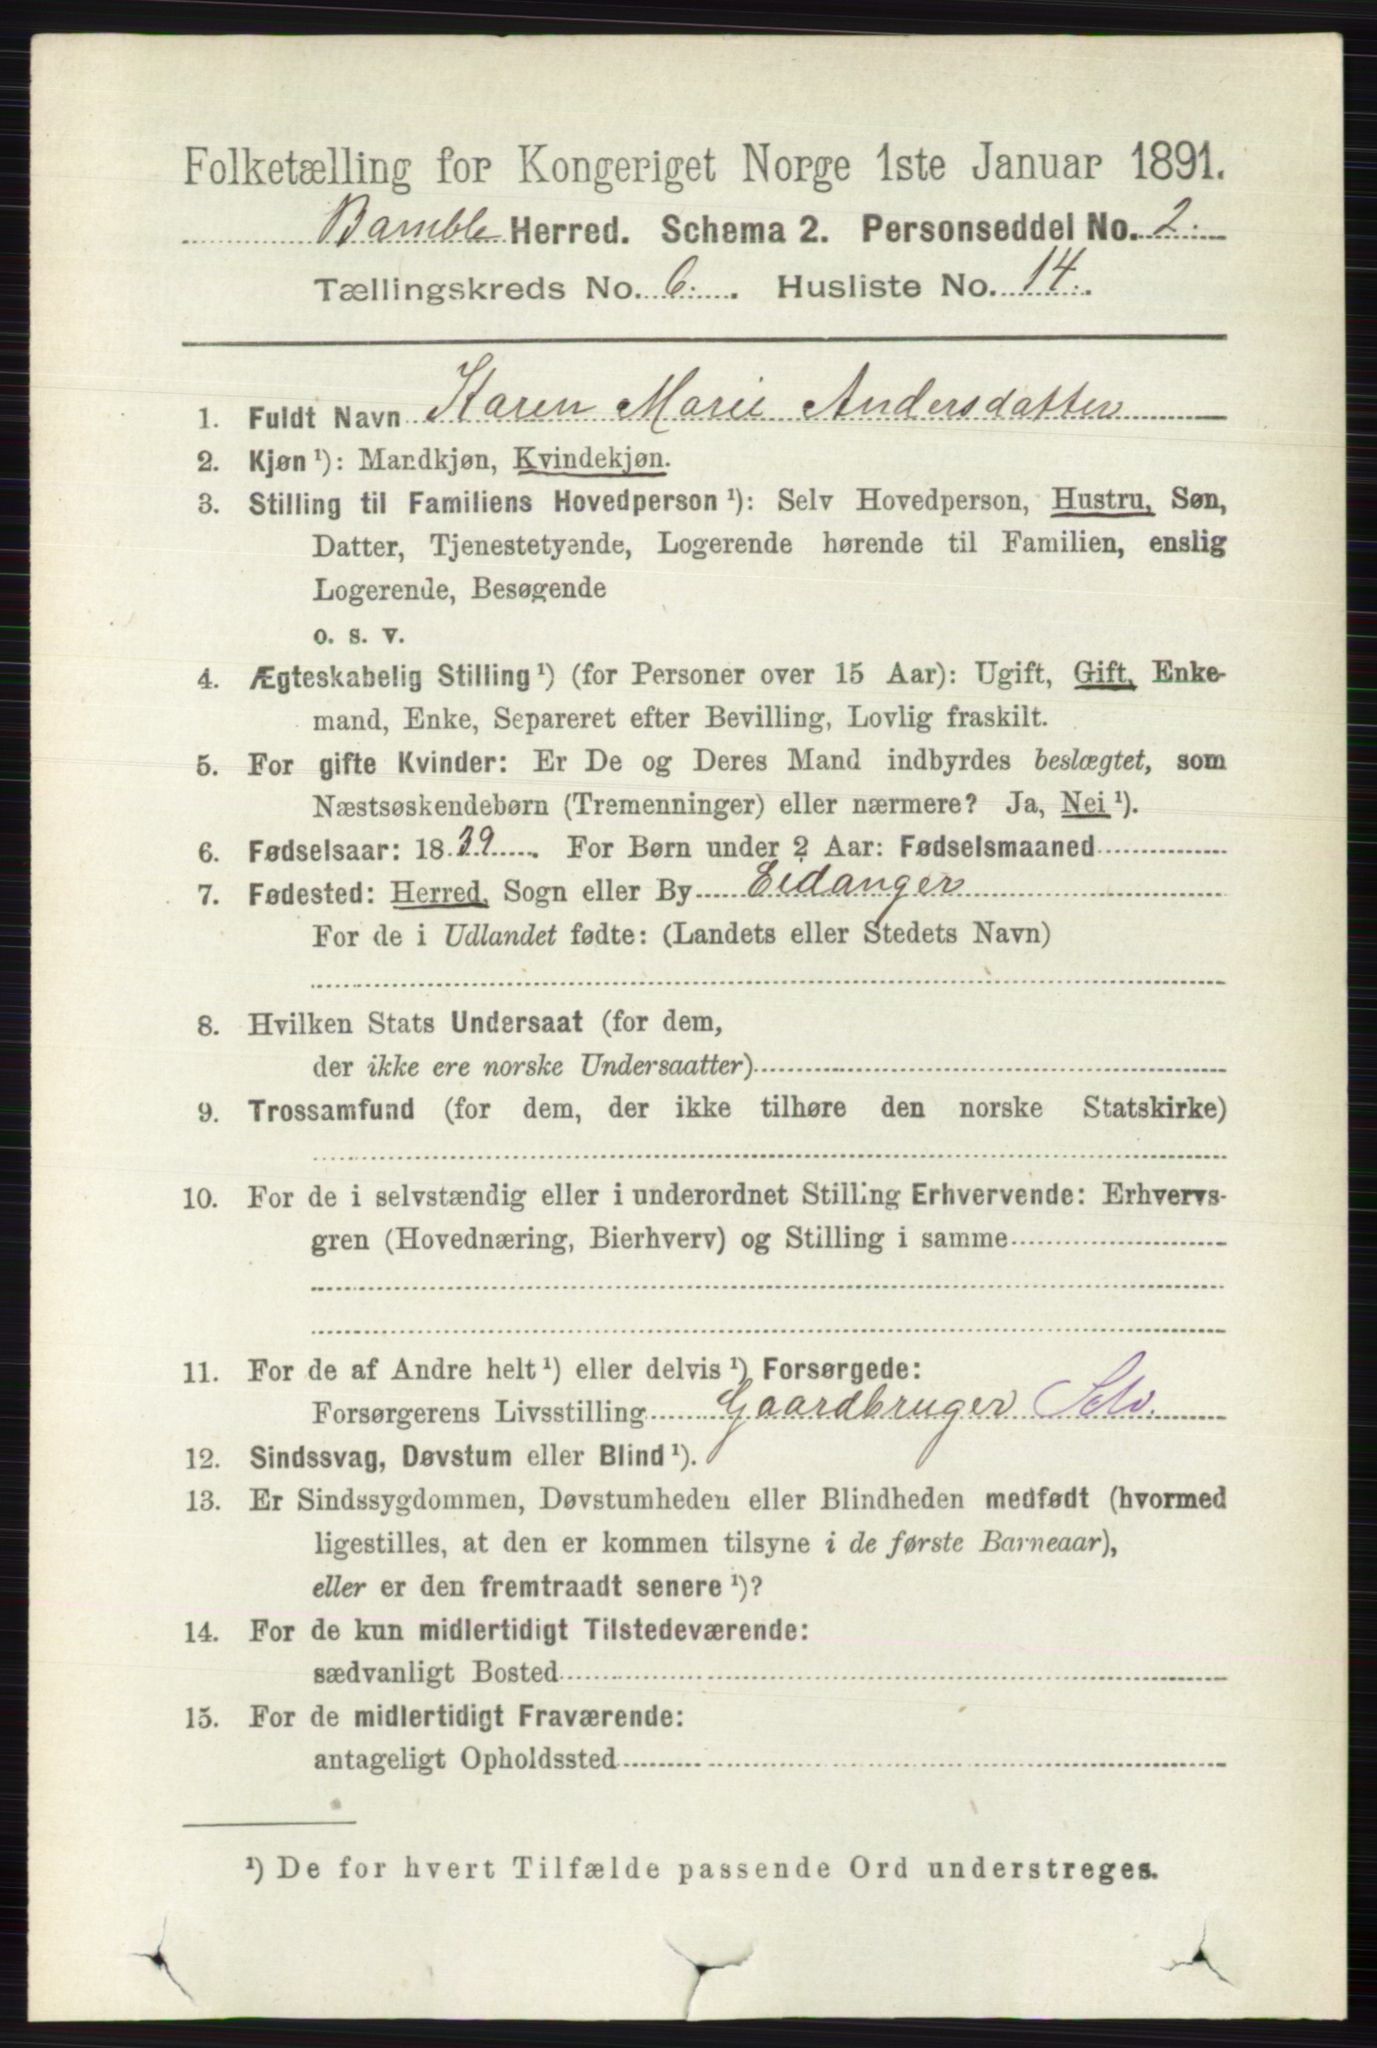 Folketælling for Kongeriget Norge 1ste Januar 1891.
Bamble Herred. Schema 2. Personseddel No. 2.
Tællingskreds No. 6. Husliste No. 14.
1. Fuldt Navn Karen Marie Andersdatter
2. Kjøn¹): Mandkjøn, Kvindekjøn.
3. Stilling til Familiens Hovedperson¹): Selv Hovedperson, Hustru, Søn,
Datter, Tjenestetyende, Logerende hørende til Familien, enslig
Logerende, Besøgende
o. s. v.
4. Ægteskabelig Stilling¹) (for Personer over 15 Aar): Ugift, Gift, Enke-
mand, Enke, Separeret efter Bevilling, Lovlig fraskilt.
5. For gifte Kvinder: Er De og Deres Mand indbyrdes beslægtet, som
Næstsøskendebørn (Tremenninger) eller nærmere? Ja, Nei¹).
6. Fødselsaar: 1839. For Børn under 2 Aar: Fødselsmaaned
7. Fødested: Herred, Sogn eller By Eidanger
For de i Udlandet fødte: (Landets eller Stedets Navn)
8. Hvilken Stats Undersaat (for dem,
der ikke ere norske Undersaatter)
9. Trossamfund (for dem, der ikke tilhøre den norske Statskirke)
10. For de i selvstændig eller i underordnet Stilling Erhvervende: Erhvervs-
gren (Hovednæring, Bierhverv) og Stilling i samme
11. For de af Andre helt¹) eller delvis¹) Forsørgede:
Forsørgerens Livsstilling Gaardbruger Selv.
12. Sindssvag, Døvstum eller Blind¹).
13. Er Sindssygdommen, Døvstumheden eller Blindheden medfødt (hvormed
ligestilles, at den er kommen tilsyne i de første Barneaar),
eller er den fremtraadt senere¹)?
14. For de kun midlertidigt Tilstedeværende:
sædvanligt Bosted
15. For de midlertidigt Fraværende:
antageligt Opholdssted
¹) De for hvert Tilfælde passende Ord understreges.